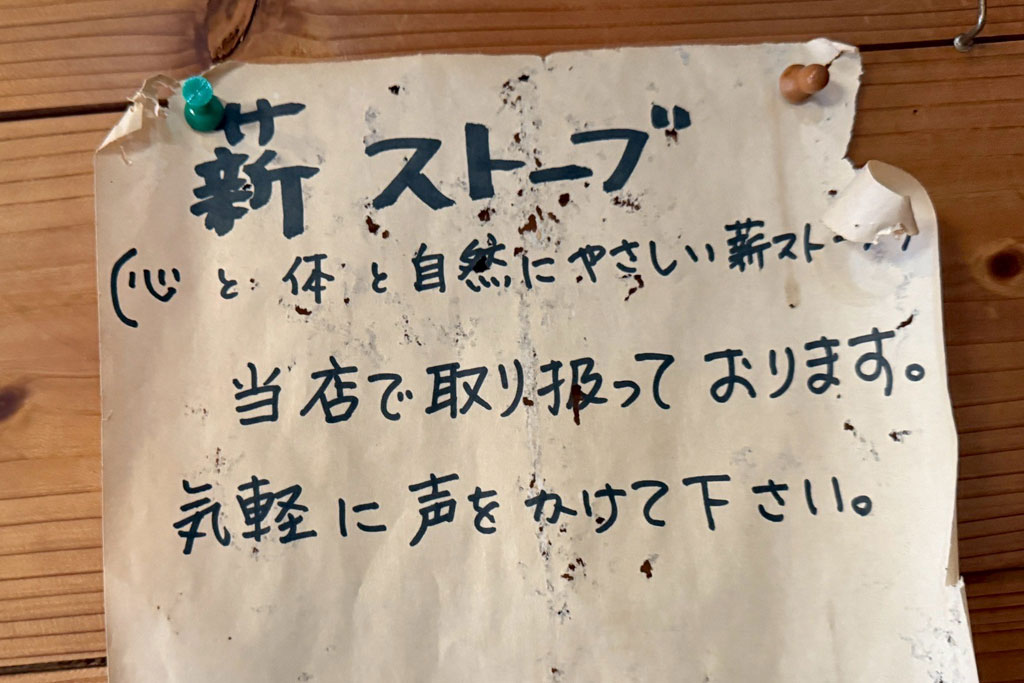 薪ストーブ
(心と体と自然にやさしい薪スト
当店で取り扱っております。
気軽に声をかけて下さい。